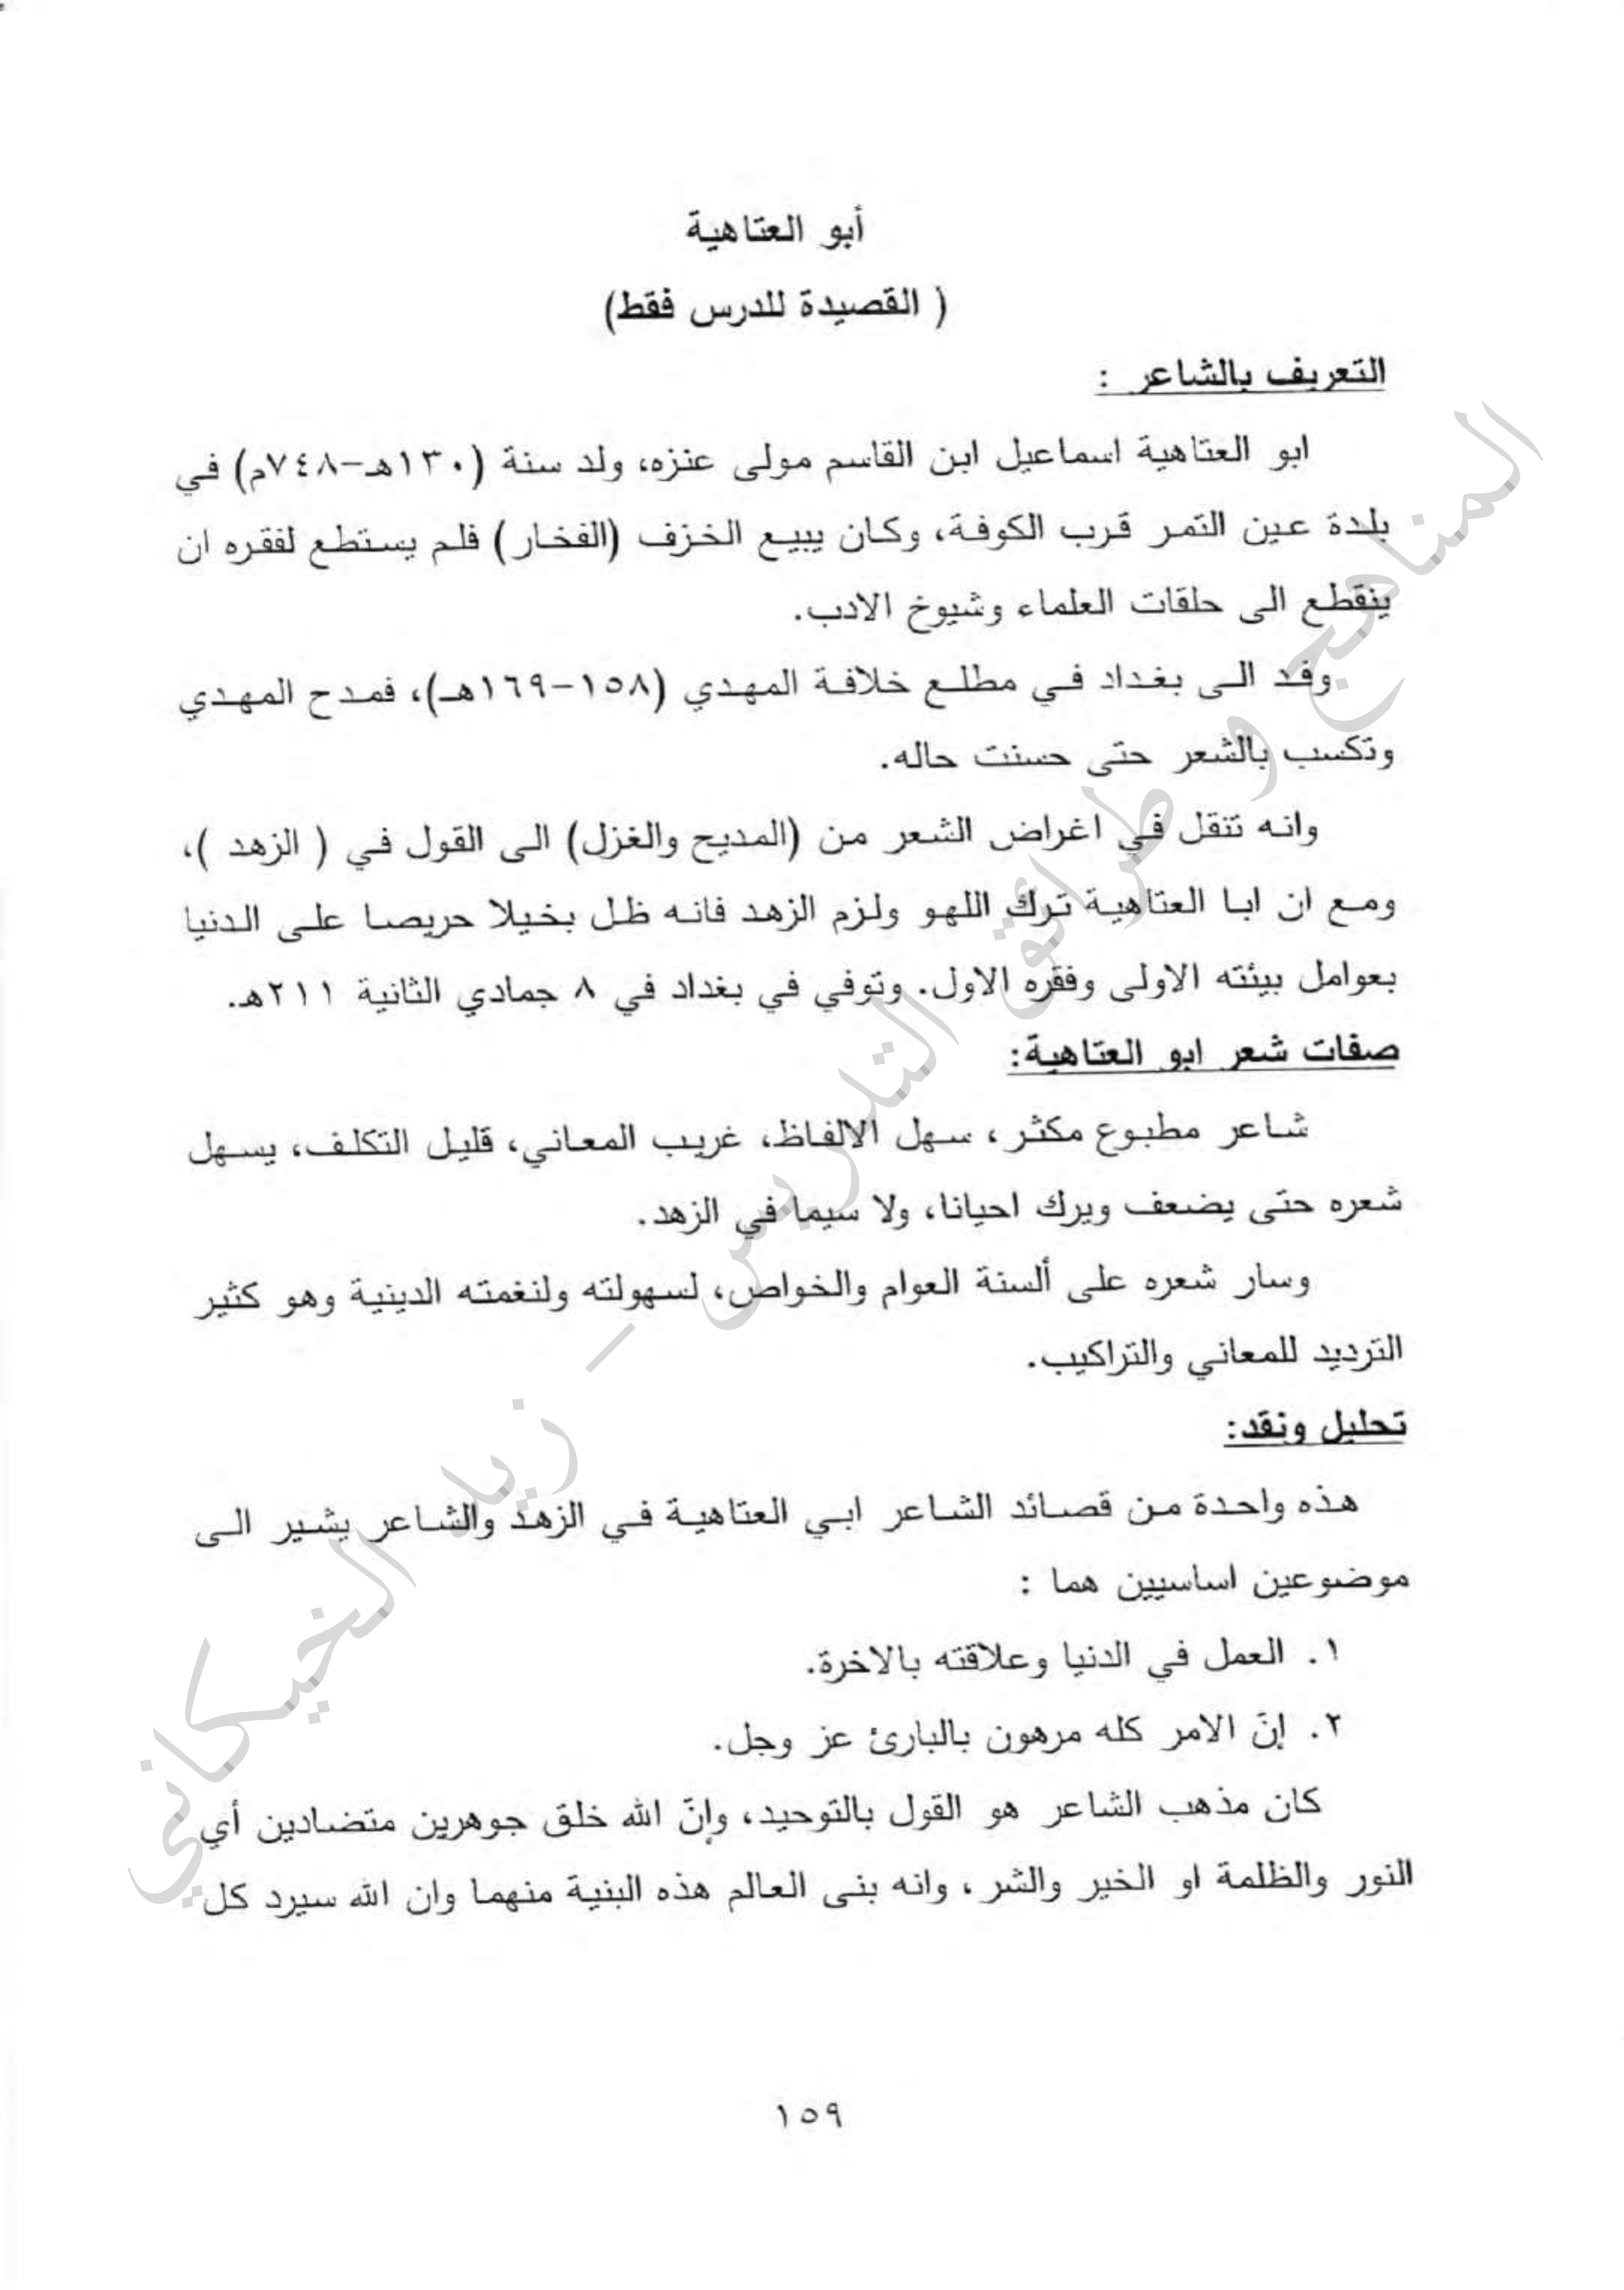 أبو العتاهية
( القصيدة للدرس فقط)
التعريف بالشاعر :
ابو العتاهية اسماعيل ابن القاسم مولى عنزه، ولد سنة (١٣٠هـ-٧٤٨م) في
بلدة عين التمر قرب الكوفة، وكان يبيع الخزف (الفخار) فلم يستطع لفقره ان
ينقطع الى حلقات العلماء وشيوخ الادب.
وفد الى بغداد في مطلع خلافة المهدي (١٥٨-١٦٩هـ)، فمدح المهدي
وتكسب بالشعر حتى حسنت حاله.
وانه تنقل في اغراض الشعر من (المديح والغزل) الى القول في ( الزهد )،
ومع ان ابا العتاهية ترك اللهو ولزم الزهد فانه ظل بخيلا حريصا على الدنيا
بعوامل بيئته الاولى وفقره الاول. وتوفي في بغداد في ٨ جمادي الثانية ٢١١هـ.
صفات شعر ابو العتاهية:
شاعر مطبوع مكثر، سهل الالفاظ، غريب المعاني، قليل التكلف، يسهل
شعره حتى يضعف ويرك احيانا، ولا سيما في الزهد.
وسار شعره على ألسنة العوام والخواص، لسهولته ولنغمته الدينية وهو كثير
الترديد للمعاني والتراكيب.
تحليل ونقد:
هذه واحدة من قصائد الشاعر ابي العتاهية في الزهد والشاعر يشير الى
موضوعين اساسيين هما :
١. العمل في الدنيا وعلاقته بالاخرة.
٢. إنّ الامر كله مرهون بالبارئ عز وجل.
كان مذهب الشاعر هو القول بالتوحيد، وإنّ الله خلق جوهرين متضادين أي
النور والظلمة او الخير والشر، وانه بنى العالم هذه البنية منهما وان الله سيرد كل
١٥٩
المناهج و طرائق التدريس – زيد الخيكاني